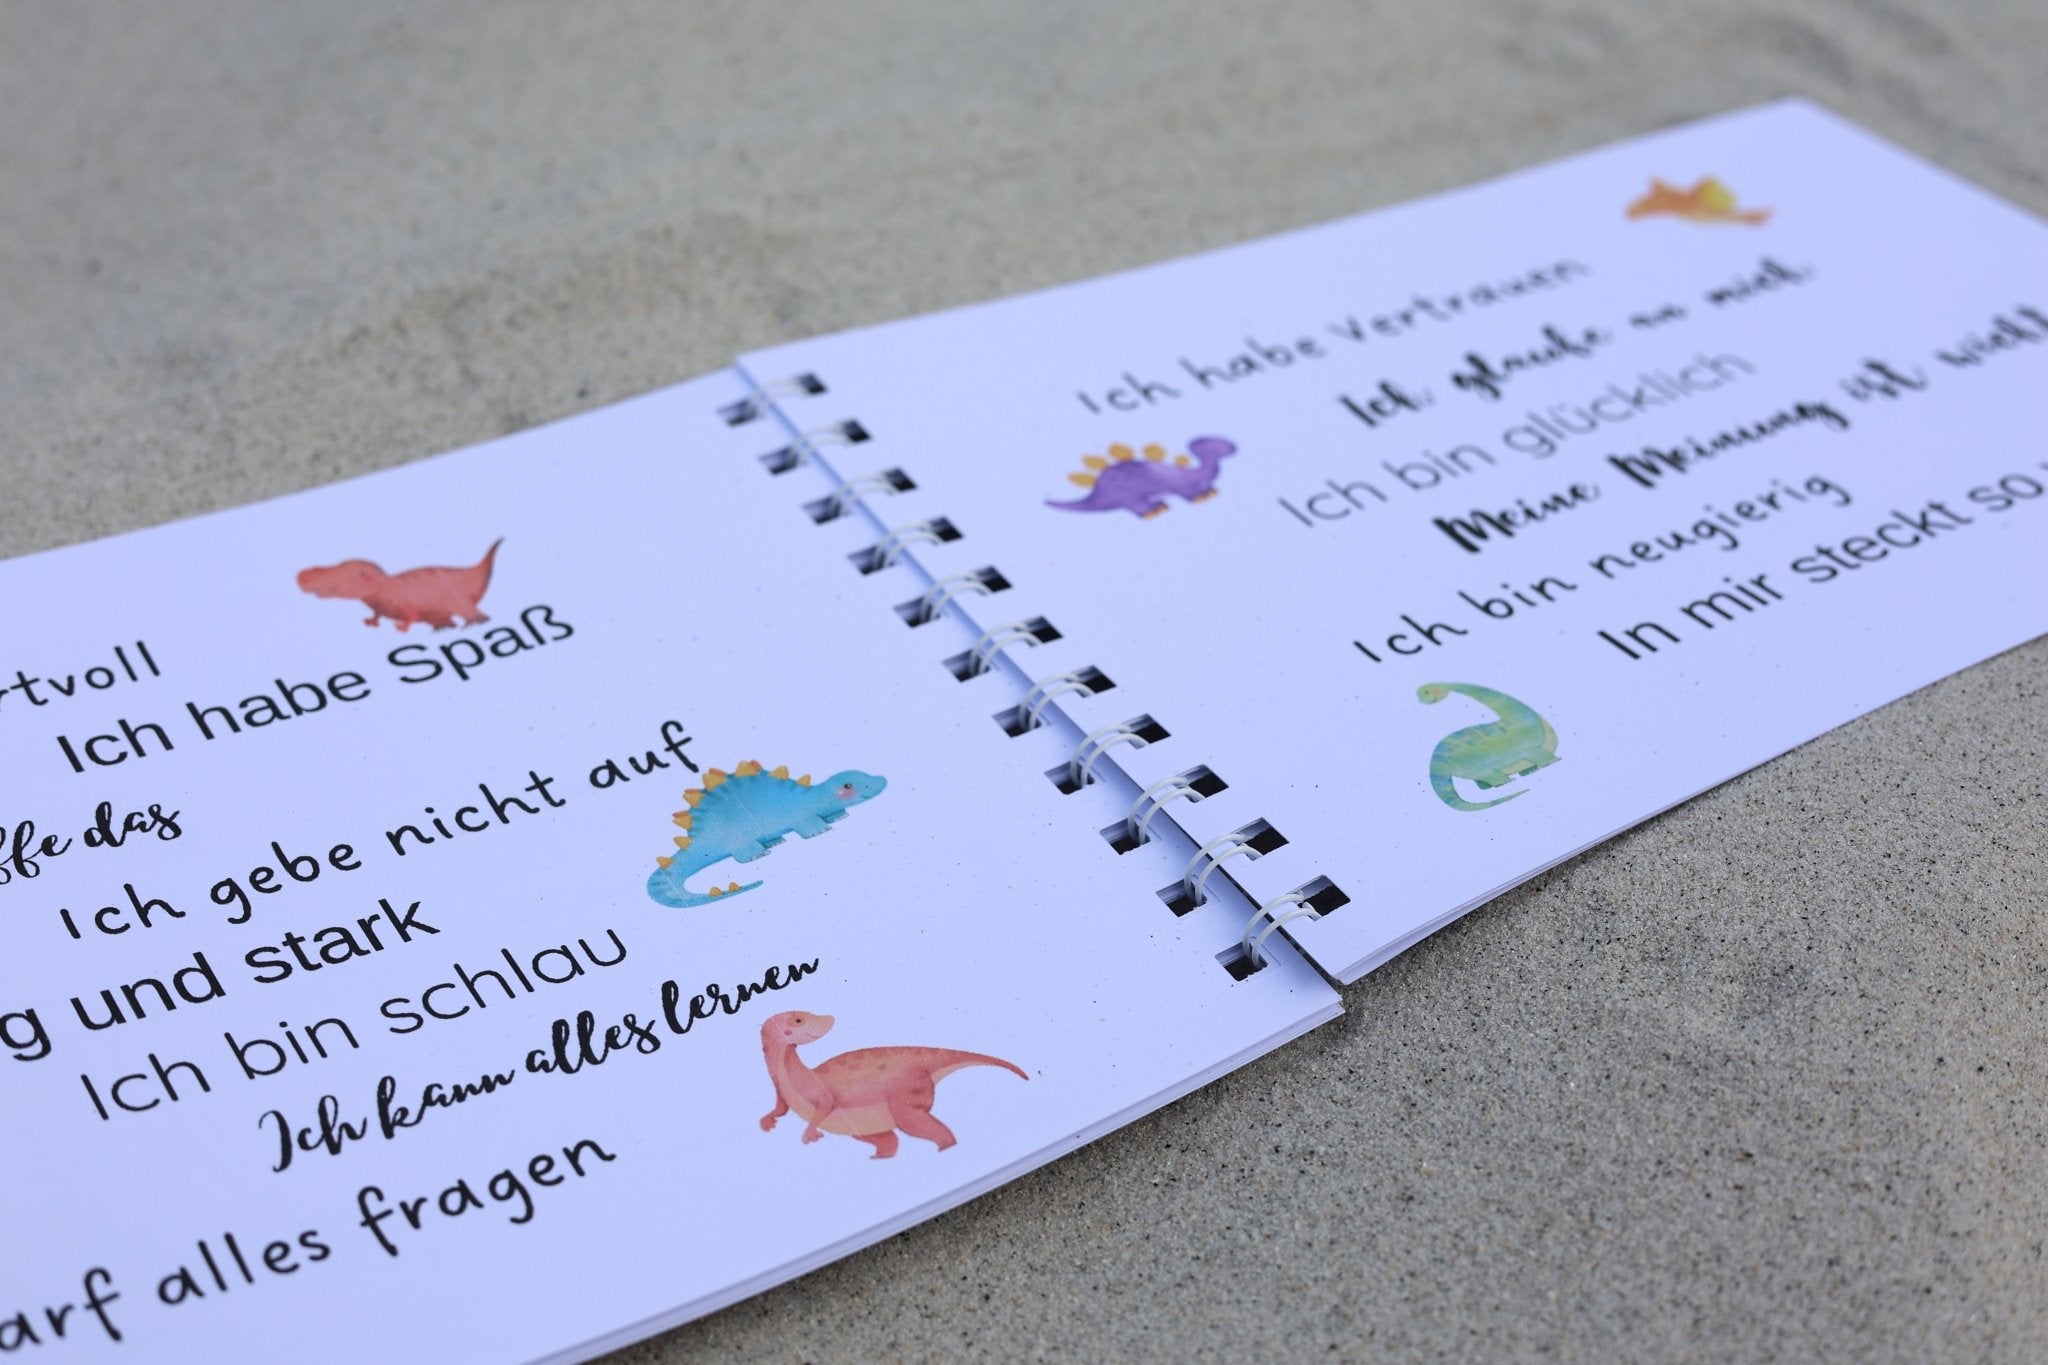 rtvoll
Ich habe Spaß
ffe das
Ich gebe nicht auf
g und stark
Ich bin schlau
Ich kann alles lernen
arf alles fragen
Ich habe Vertrauen
Ich glaube an mich
Ich bin glücklich
Meine Meinung ist
Ich bin neugierig
In mir steckt so